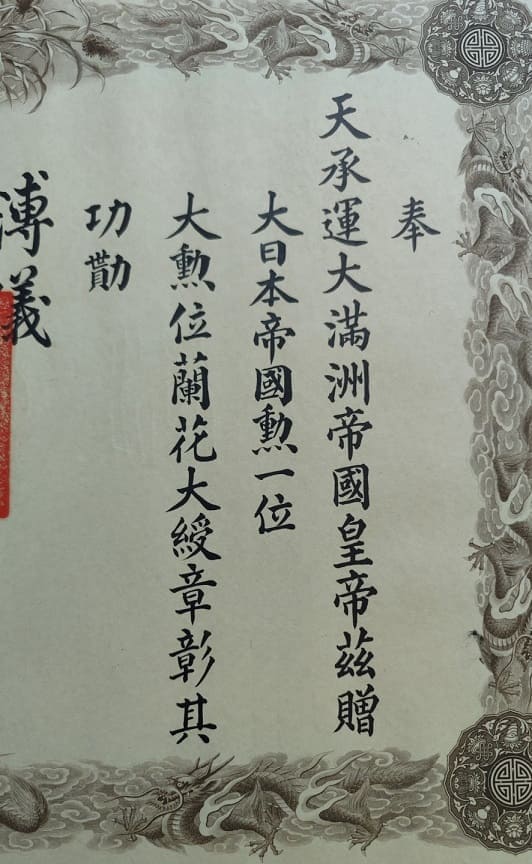 奉
天承運大滿洲帝國皇帝茲贈
大日本帝國勲一位
大勲位蘭花大綬章彰其
功勩
溥儀